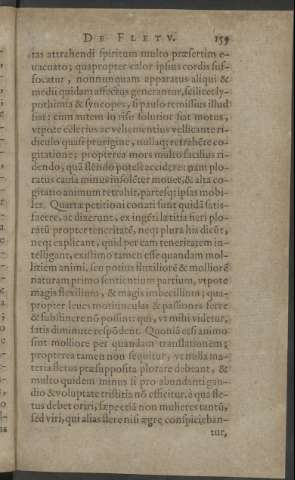 DE FLETV. 159
tas attrahendi spiritum multo præsertim e-
uacuato; quapropter calor ipsius cordis suf-
focatur, nonnunquam apparatus aliqui &
medii quidam affectus generantur, scilicet ly-
pothimia & syncopes, si paulo remissius illud
fiat: cum autem in risu solutior fiat motus,
vtpote celerius ac vehementius vellicante ri-
diculo quasi prurigine, nullaq; retrahēte co-
gitatione; propterea mors multo facilius ri-
dendo, quā flendo potest accidere: nam plo-
ratus caria minus insolēter mouet, & alta co-
gitatio animum retrahit, partesq; ipsas mobi-
les. Quartæ petitioni conati sunt quidā satis-
facere, ac dixerunt, ex ingēti lætitia fieri plo-
ratū propter teneritatē, neq; plura his dicūt,
neq; explicant, quid per eam teneritatem in-
telligant, existimo tamen esse quandam mol-
litiem animi, seu potius fluxiliorē & molliorē
naturam primo sentientium partium, vtpote
magis flexilium, & magis imbecillium; qua-
propter leues motiunculas & passiones ferre
& substinere nō possint: qui, vt mihi videtur,
satis diminute respōdent. Quoniā etsi animo
sint molliore per quandam translationem;
propterea tamen non sequitur, vt nulla ma-
teria fletus præsupposita plorare debeant, &
multo quidem minus si pro abundanti gau-
dio & voluptate tristitia nō efficitur, è qua fle-
tus debet oriri, sæpe etiā non mulieres tantū,
sed viri, qui alias flere nisi ægre conspicieban-
tur,